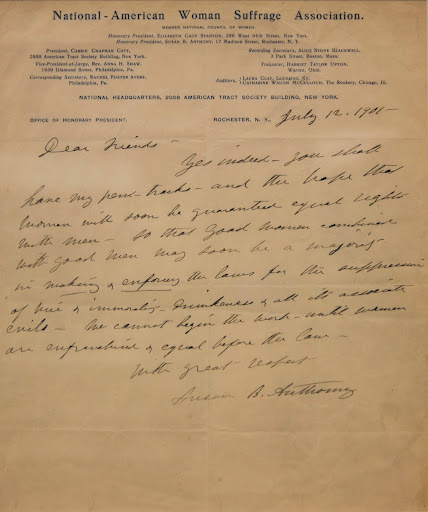 National-American Woman Suffrage Association.
MEMBER NATIONAL COUNCIL OF WOMEN.
Honorary President, ELIZABETH CADY STANTON, 250 West 94th Street, New York.
Honorary President, SUSAN B. ANTHONY, 17 Madison Street, Rochester, N. Y.
President, CARRIE CHAPMAN CATT,
2008 American Tract Society Building, New York.
Vice-President-at-Large, REV. ANNA H. SHAW,
1830 Diamond Street, Philadelphia, Pa.
Corresponding Secretary, RACHEL FOSTER AVERY,
Philadelphia, Pa.
Recording Secretary, ALICE STONE BLACKWELL,
3 Park Street, Boston, Mass.
Treasurer, HARRIET TAYLOR UPTON,
Warren, Ohio.
Auditors, LAURA CLAY, Lexington, Ky.
CATHARINE WAUGH MCCULLOCH, The Rookery, Chicago, Ill.
NATIONAL HEADQUARTERS, 2008 AMERICAN TRACT SOCIETY BUILDING, NEW YORK.
OFFICE OF HONORARY PRESIDENT.
ROCHESTER, N. Y., July 12, 1901-
Dear Friends-
Yes indeed- you shall
have my pen-tracks- and the hope that
women will soon be guaranteed equal rights
with men- so that good women combined
with good men may soon be a majority
in making & enforcing the laws for the suppression
of vice & immorality- drunkeness & all its associate
evils- We cannot begin the work- until women
are enfranchised & equal before the law-
With great respect
Susan B. Anthony